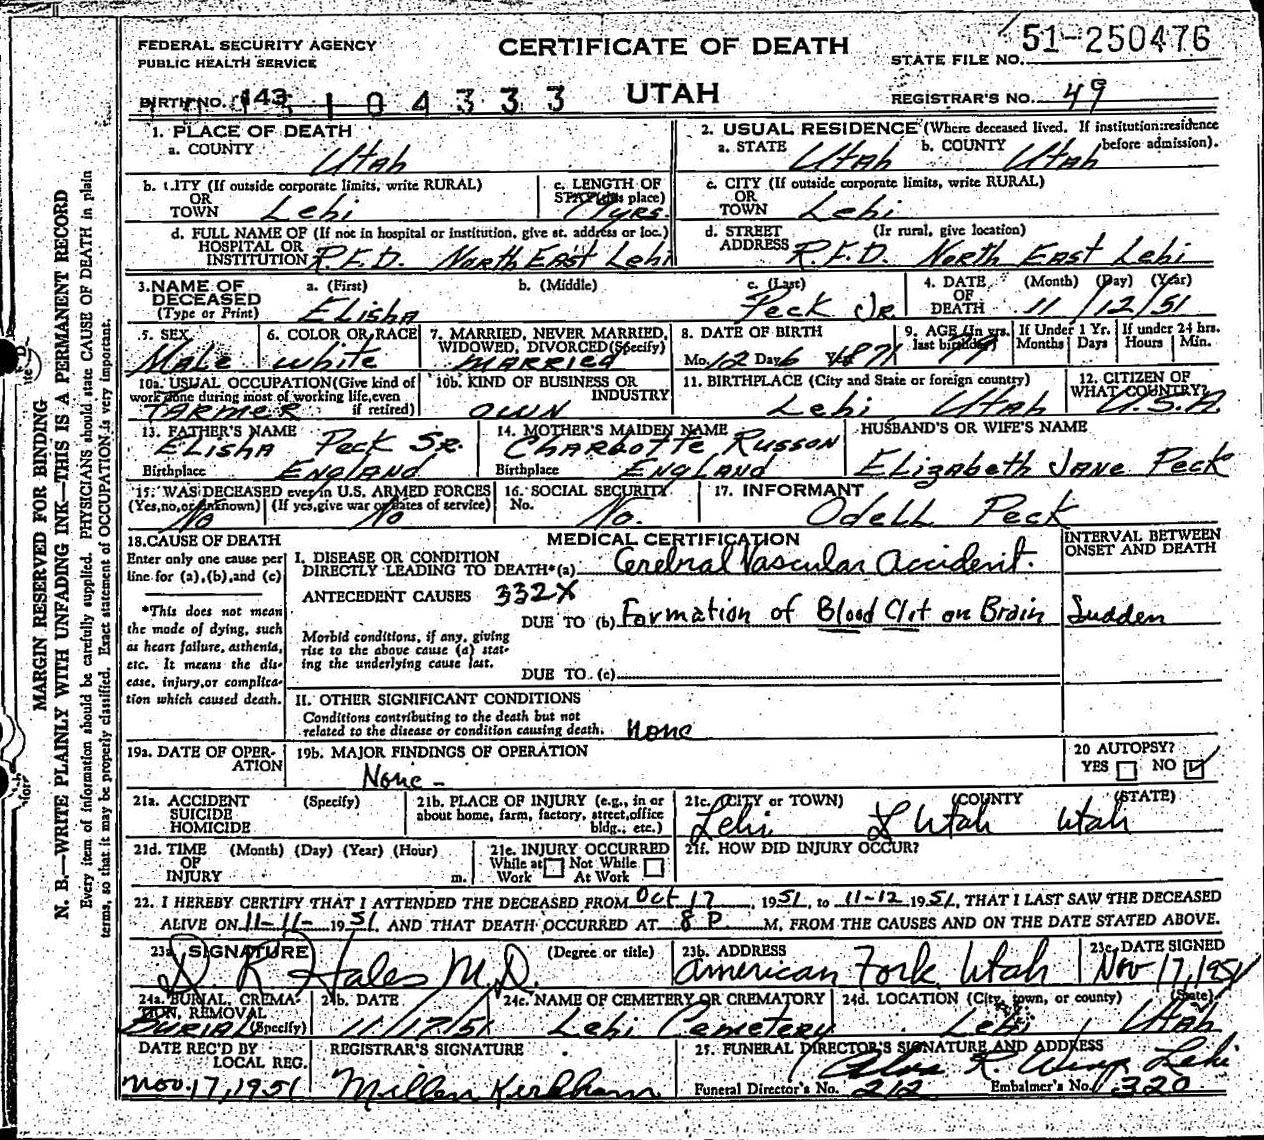 FEDERAL SECURITY AGENCY
PUBLIC HEALTH SERVICE
CERTIFICATE OF DEATH
UTAH
STATE FILE NO. 51-250476
REGISTRAR'S NO. 49
BIRTH NO. 143 104333
1. PLACE OF DEATH
a. COUNTY Utah
2. USUAL RESIDENCE (Where deceased lived. If institution: residence before admission).
a. STATE Utah b. COUNTY Utah
b. CITY (If outside corporate limits, write RURAL)
OR
TOWN Lehi
c. LENGTH OF
STAY (this place)
yrs.
c. CITY (If outside corporate limits, write RURAL)
OR
TOWN Lehi
d. FULL NAME OF (If not in hospital or institution, give st. address or loc.)
HOSPITAL OR
INSTITUTION R.F.D. North East Lehi
d. STREET (If rural, give location)
ADDRESS R.F.D. North East Lehi
3. NAME OF
DECEASED
(Type or Print)
a. (First) Elisha
b. (Middle)
c. (Last) Peck Jr
4. DATE OF DEATH (Month) (Day) (Year)
11/12/51
5. SEX
Male
6. COLOR OR RACE
White
7. MARRIED, NEVER MARRIED,
WIDOWED, DIVORCED (Specify)
Married
8. DATE OF BIRTH
Mo. 12 Day 6 Yr. 1871
9. AGE (In yrs. last birthday) 79
If Under 1 Yr. Months Days
If under 24 hrs. Hours Min.
10a. USUAL OCCUPATION (Give kind of work done during most of working life, even if retired)
Farmer
10b. KIND OF BUSINESS OR INDUSTRY
Own
11. BIRTHPLACE (City and State or foreign country)
Lehi, Utah
12. CITIZEN OF WHAT COUNTRY?
U.S.A.
13. FATHER'S NAME
Elisha Peck Sr.
Birthplace England
14. MOTHER'S MAIDEN NAME
Charlotte Russon
Birthplace England
HUSBAND'S OR WIFE'S NAME
Elizabeth Jane Peck
15. WAS DECEASED ever in U.S. ARMED FORCES
(Yes, no, or unknown) (If yes, give war or dates of service)
No No
16. SOCIAL SECURITY
No. No.
17. INFORMANT
Odell Peck
18. CAUSE OF DEATH
Enter only one cause per
line for (a), (b), and (c)
*This does not mean
the mode of dying, such
as heart failure, asthenia,
etc. It means the dis-
ease, injury, or complica-
tion which caused death.
MEDICAL CERTIFICATION
INTERVAL BETWEEN
ONSET AND DEATH
I. DISEASE OR CONDITION
DIRECTLY LEADING TO DEATH*(a) Cerebral Vascular Accident.
ANTECEDENT CAUSES 332X
DUE TO (b) Formation of Blood Clot on Brain Sudden
Morbid conditions, if any, giving
rise to the above cause (a) stat-
ing the underlying cause last.
DUE TO (c)
II. OTHER SIGNIFICANT CONDITIONS
Conditions contributing to the death but not
related to the disease or condition causing death. none
19a. DATE OF OPER-
ATION
19b. MAJOR FINDINGS OF OPERATION
None -
20 AUTOPSY?
YES NO
21a. ACCIDENT
SUICIDE
HOMICIDE
(Specify)
21b. PLACE OF INJURY (e.g., in or
about home, farm, factory, street, office
bldg., etc.)
21c. (CITY or TOWN) (COUNTY (STATE)
Lehi Utah Utah
21d. TIME (Month) (Day) (Year) (Hour)
OF
INJURY m.
21e. INJURY OCCURRED
While at Work Not While At Work
21f. HOW DID INJURY OCCUR?
22. I HEREBY CERTIFY THAT I ATTENDED THE DECEASED FROM Oct 17, 1951, to 11-12 1951, THAT I LAST SAW THE DECEASED
ALIVE ON 11-11- 1951, AND THAT DEATH OCCURRED AT 8 P. M, FROM THE CAUSES AND ON THE DATE STATED ABOVE.
23a SIGNATURE (Degree or title)
D. K Hales M.D.
23b. ADDRESS
American Fork Utah
23c. DATE SIGNED
Nov 17, 1951
24a. BURIAL, CREMA-
TION, REMOVAL
Burial (Specify)
24b. DATE
11/17/51
24c. NAME OF CEMETERY OR CREMATORY
Lehi Cemetery
24d. LOCATION (City, town, or county) (State)
Lehi, Utah
DATE REC'D BY
LOCAL REG.
Nov. 17, 1951
REGISTRAR'S SIGNATURE
Kirkham
25. FUNERAL DIRECTOR'S SIGNATURE AND ADDRESS
R. Wing Lehi
Funeral Director's No. 212 Embalmer's No. 320
MARGIN RESERVED FOR BINDING
N. B.—WRITE PLAINLY WITH UNFADING INK—THIS IS A PERMANENT RECORD
Every item of information should be carefully supplied. PHYSICIANS should state CAUSE OF DEATH in plain
terms, so that it may be properly classified. Exact statement of OCCUPATION is very important.